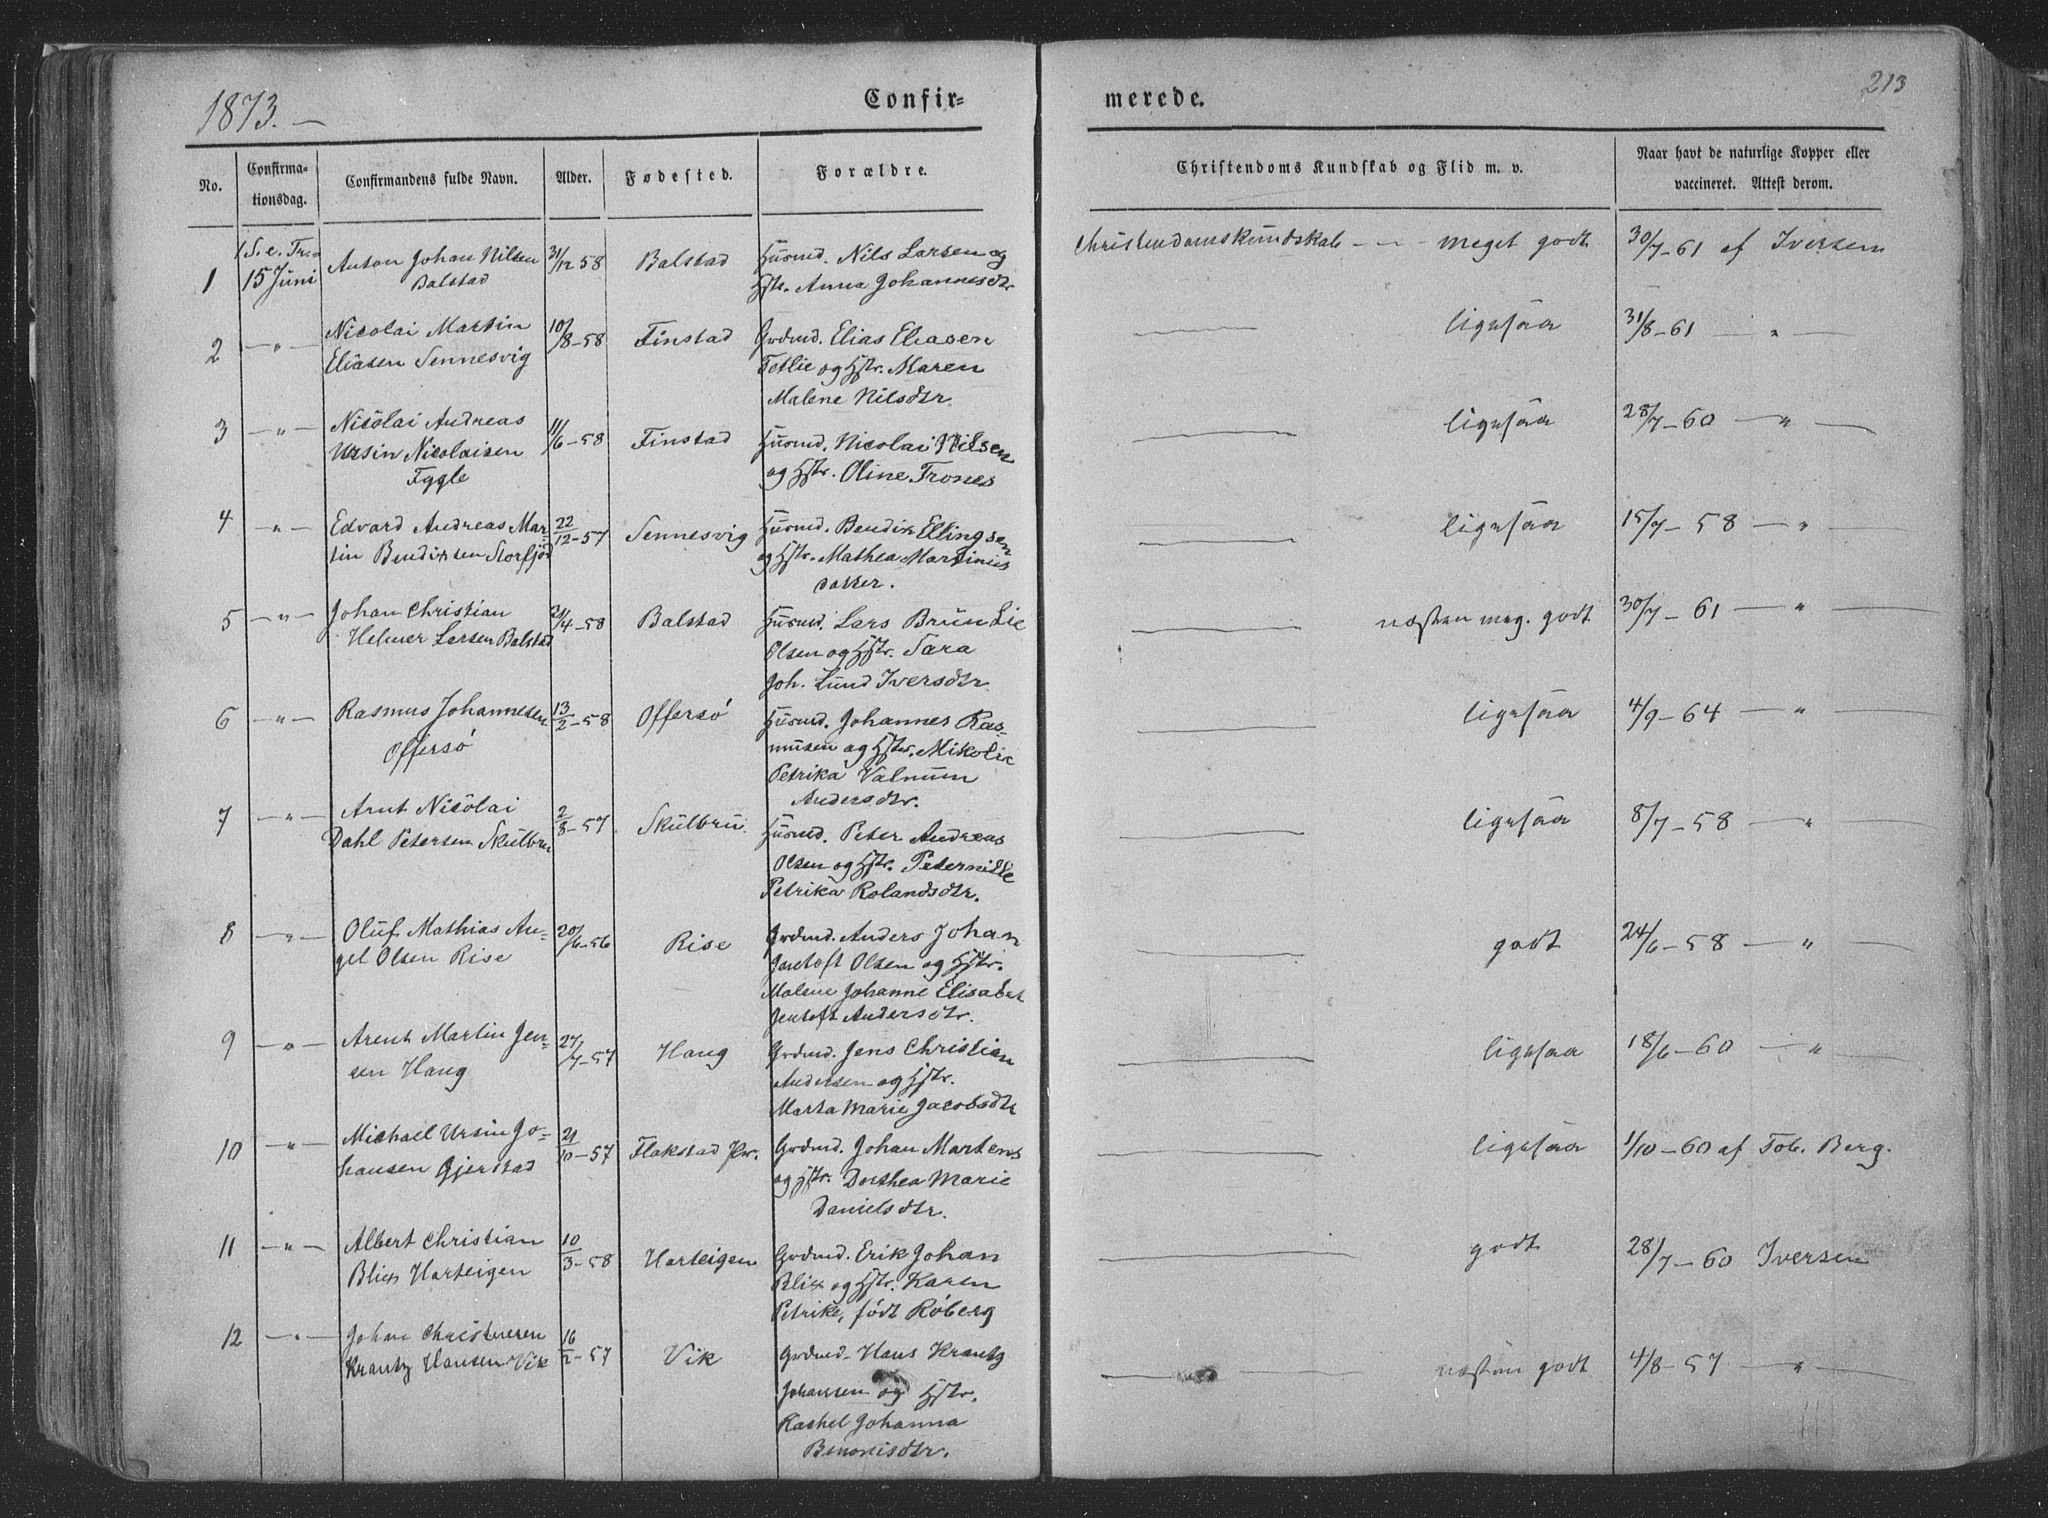 1873. —
Confir-
merede.
213
No.
Confirma-
tionsdag.
Confirmandens fulde Navn.
Alder.
Fødested.
Forældre.
Christendoms Kundskab og Flid m. v.
Naar havt de naturlige Kopper eller
vaccineret. Attest derom.
1 S. e. Tr.
1 15 Juni Anton Johan Nilsen 31/12 58 Balstad Husmd. Nils Larsen og Christendomskundskab - - - meget godt 30/7-61 af Iversen
Balstad Hstr. Anna Johannesdtr
2 — " — Nicolai Martin 10/8-58 Finstad Grdmd. Elias Eliasen ligesaa 31/8-61 "
Eliasen Sennesvig Tetlie og Hstr. Maren
Malene Nilsdtr.
3 — " — Nicolai Andreas 11/6-58 Finstad Husmd. Nicolai Nilsen ligesaa 28/7-60 — " —
Ursin Nicolaisen og Hstr. Oline Trones
Fygle
4 — " — Edvard Andreas Mar- 22/12-57 Sennesvig Husmd. Bendix Ellingsen ligesaa 15/7-58 — " —
tin Bendixsen Storfjord og Hstr. Mathea Martinius
datter.
5 — " — Johan Christian /4-58 Balstad Husmd. Lars Brun Lie næsten meg. godt 30/7-61 — " —
Helmer Larsen Balstad Olsen og Hstr. Sara
Joh. Lund Iversdtr
6 — " — Rasmus Johannesen 13/2-58 Offersø Husmd. Johannes Ras- ligesaa 4/9-64 — " —
Offersø musen og Hstr. Mikolie
Petrika Valnum
Andersdtr.
7 — " — Arnt Nicolai 2/8-57 Skulbru. Husmd. Peter Andreas ligesaa 8/7-58 — " —
Dahl Petersen Skulbru Olsen og Hstr. Petermille
Petrika Rolandsdtr.
8 — " — Oluf Mathias An- 20/6-56 Rise Grdmd. Anders Johan godt 24/6-58 — " —
gel Olsen Rise Jentoft Olsen og Hstr.
Malene Johanne Elisabet
Jentoft Andersdtr.
9 — " — Arent Martin Jen- 27/7-57 Haug Grdmd. Jens Christian ligesaa 18/6-60 — " —
sen Haug Andersen og Hstr.
Marta Marie Jacobsdtr
10 — " — Michael Ursin Jo- 21/10-57 Flakstad Pr. Grdmd. Johan Martens ligesaa 1/10-60 af Tob. Berg.
hansen Gjerstad og Hstr. Dorthea Marie
Danielsdtr.
11 — " — Albert Christian 10/3-58 Harteigen Grdmd. Erik Johan godt 28/7-60 Iversen
Blix Harteigen Blix og Hstr. Karen
Petrike, født Röberg
12 — " — Johan 16/2-57 Vik Grdmd. Hans Krantz næsten godt 4/8-57 — " —
Krantz Hansen Vik Johansen og Hstr.
Rachel Johanna
Benonisdtr.